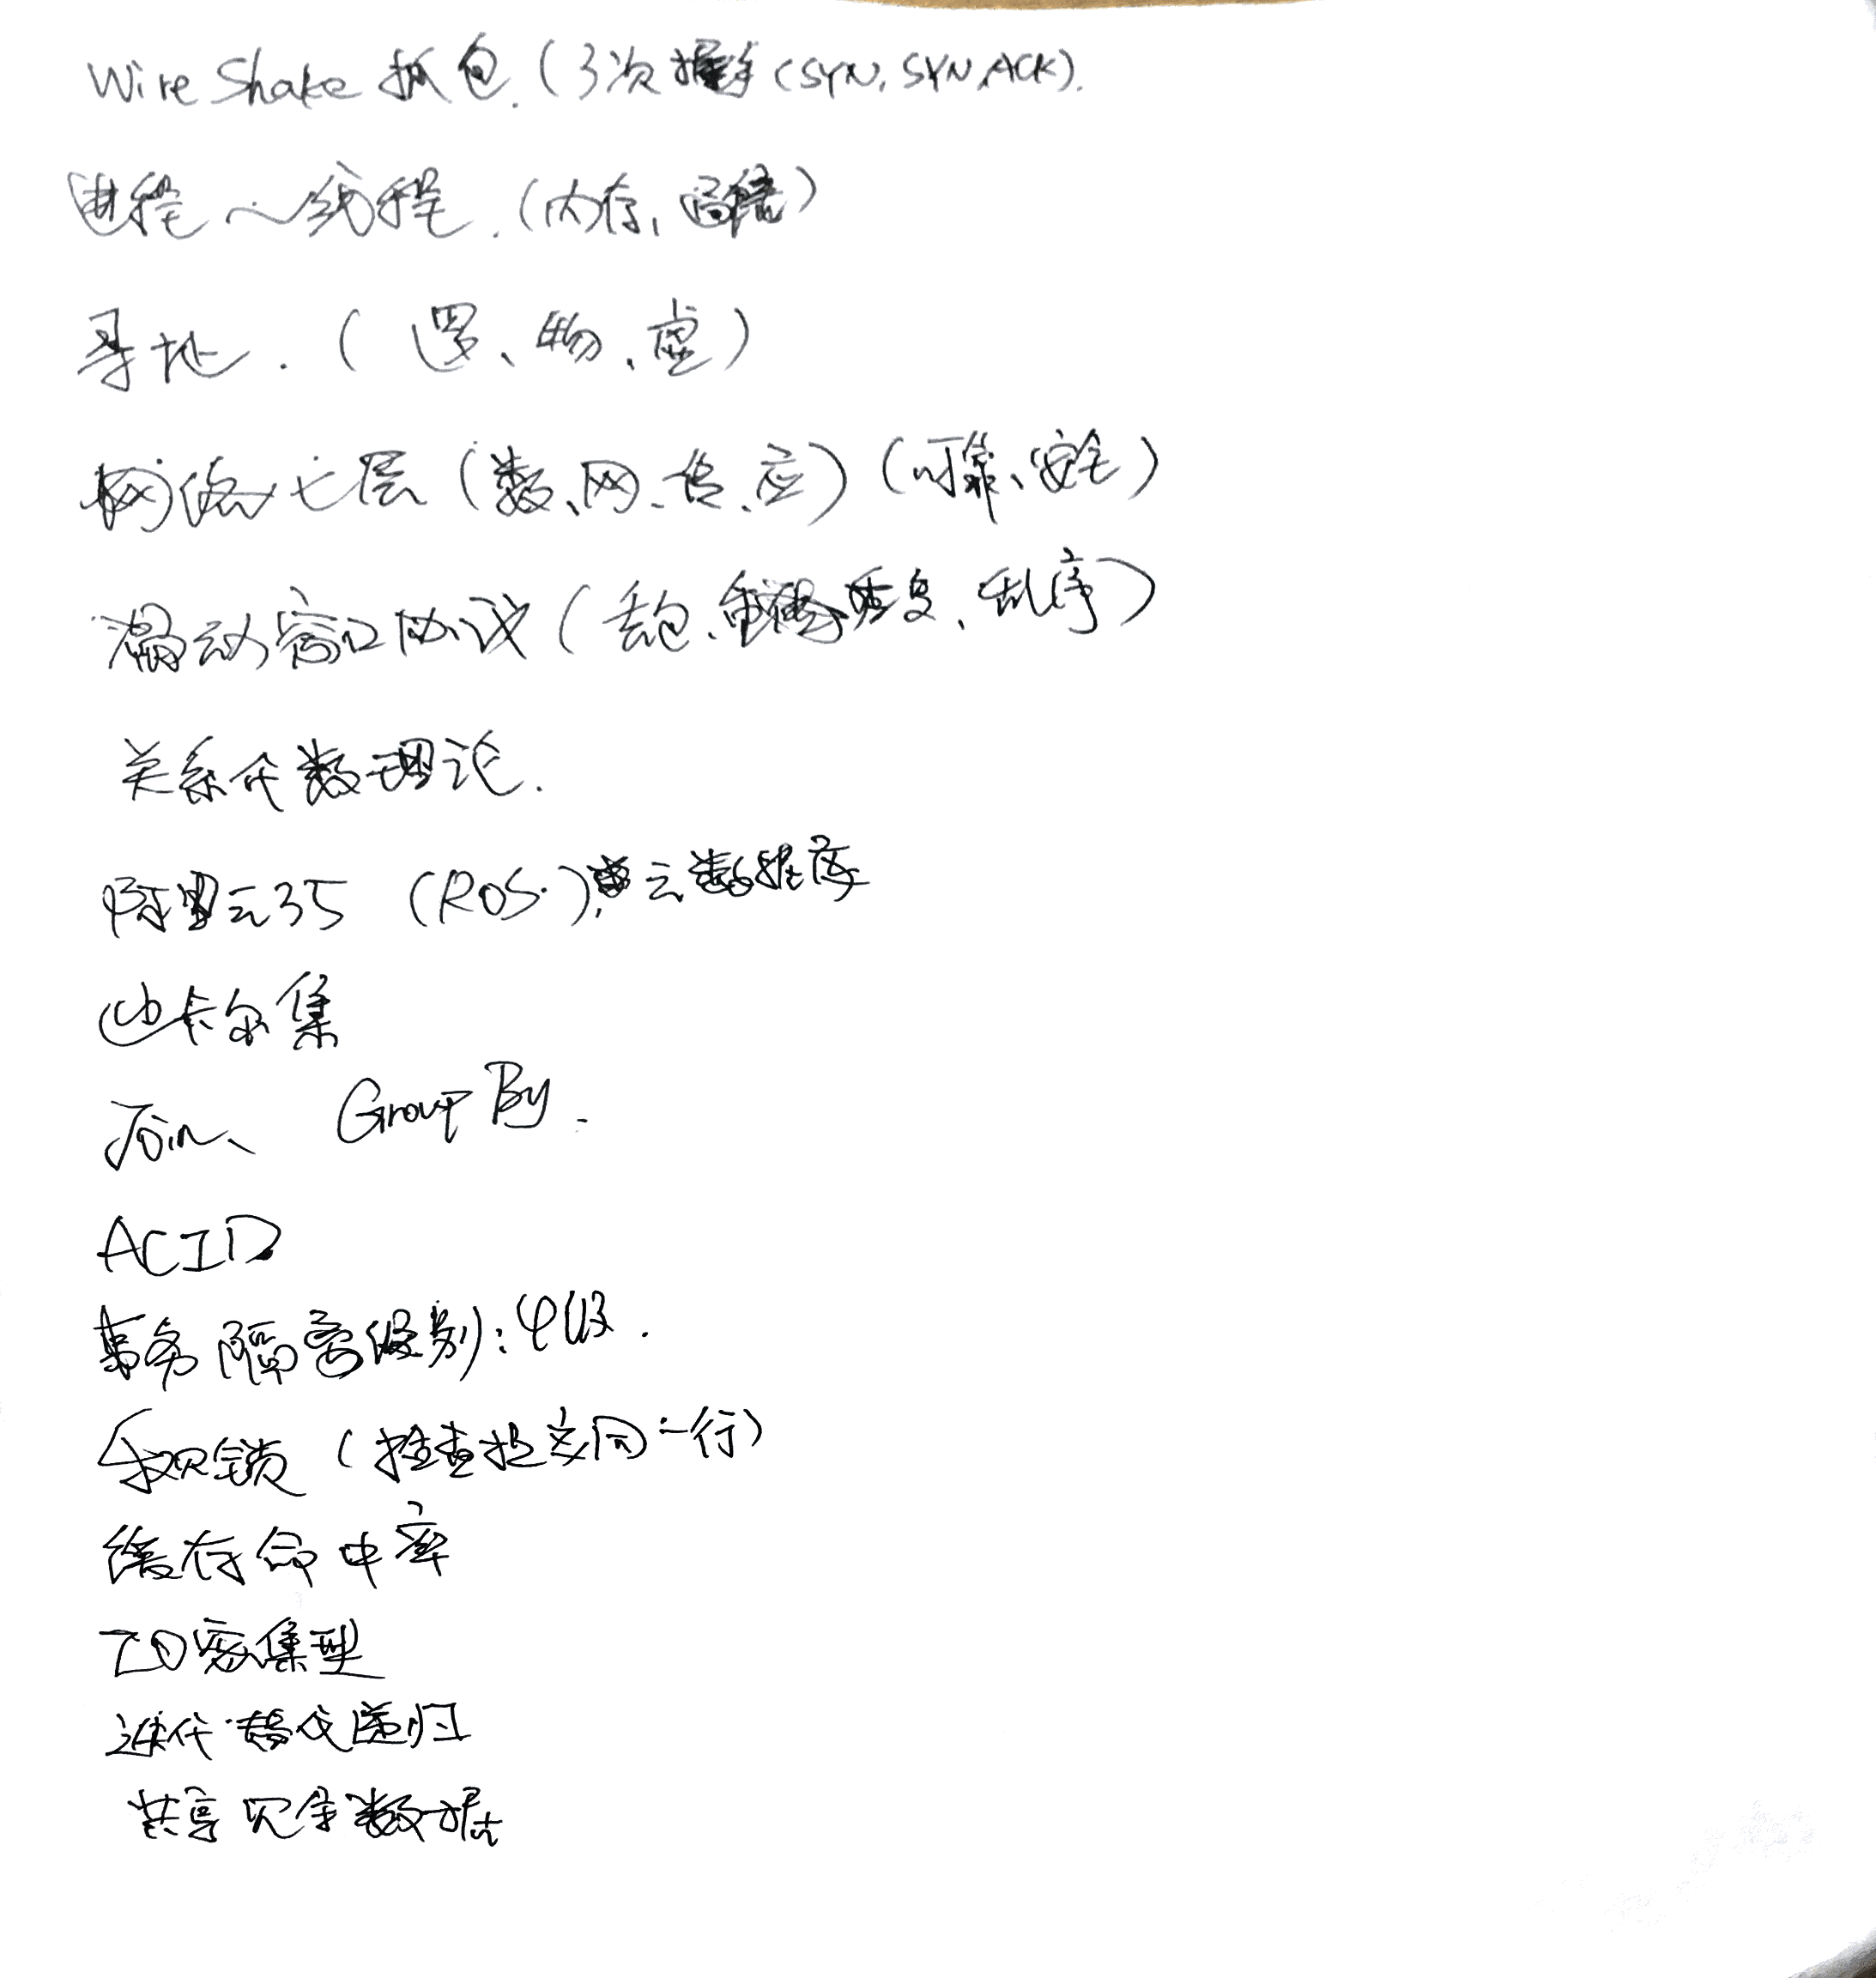 Wire Shake 抓包.(3次握手(SYN, SYN,ACK).
进程~线程.(内存,通信)
寻址.(逻、物、虚)
网络七层(数、网、传、应)(可靠、安全)
滑动窗口协议(丢包、恢复、乱序)
关系代数理论.
阿里云35 (ROS.), 云数据库
迪卡尔集
Join、 Group By.
ACID
事务隔离级别:4级.
乐观锁(检查提交同一行)
缓存命中率
IO密集型
迭代替代递归
共享冗余数据